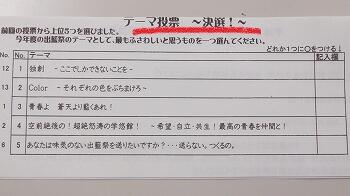 テーマ投票　～決選！～
前回の投票から上位5つを選びました。
今年度の出藍祭のテーマとして、最もふさわしいと思うものを一つ選んでください。
どれか1つに○をつける↓
No. テーマ 記入欄
12 1 独創　～ここでしかできないことを～
13 2 Color　～それぞれの色をぶちまけろ～
1 3 青春よ　蒼天より藍くあれ！
2 4 空前絶後の！超絶怒涛の学悠館！　～希望・自立・共生！最高の青春を仲間と！
6 5 あなたは味気のない出藍祭を送りたいですか？・・・送らない。つくるの。